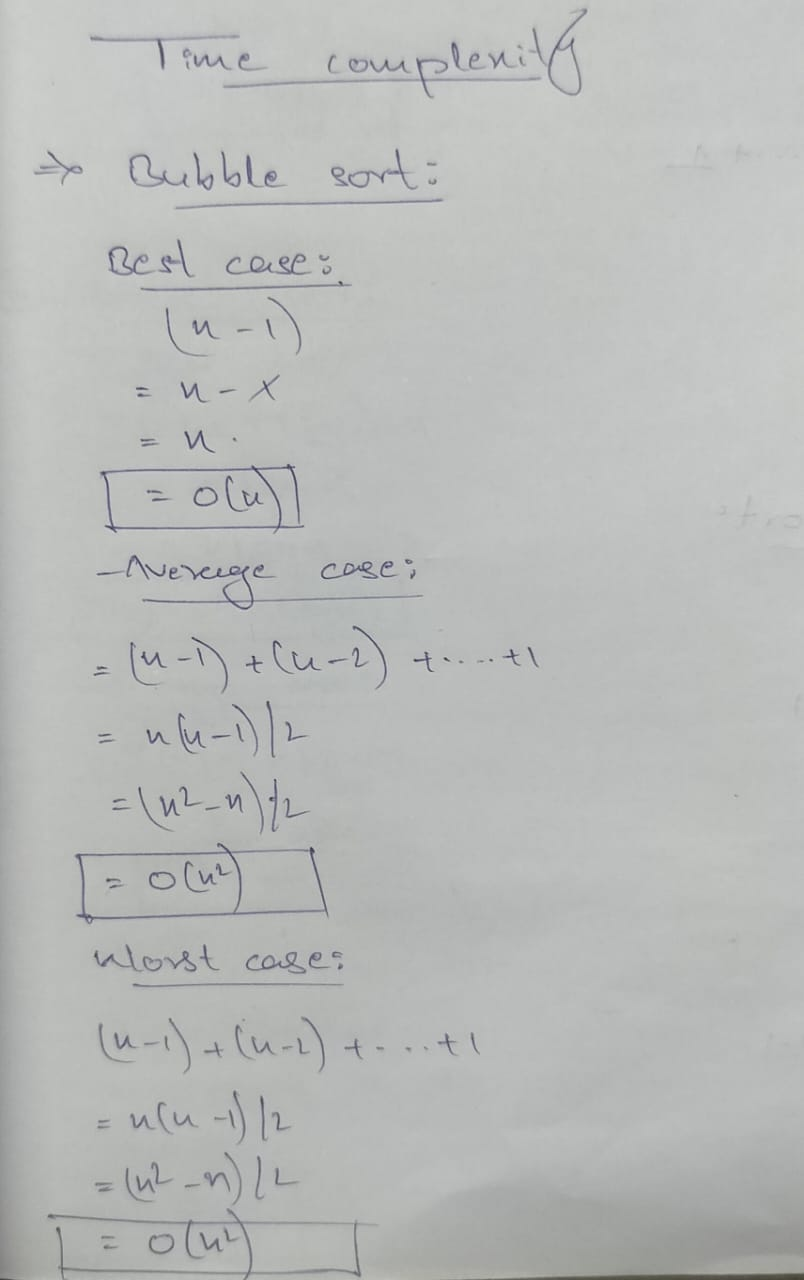 Time complexity
⇒ Bubble sort:
Best case:
(n-1)
= n - x
= n.
= O(n)
- Average case:
= (n-1) + (n-2) + ..... +1
= n(n-1)/2
= (n²-n)/2
= O(n²)
Worst case:
(n-1) + (n-2) + .... +1
= n(n-1)/2
= (n²-n)/2
= O(n²)